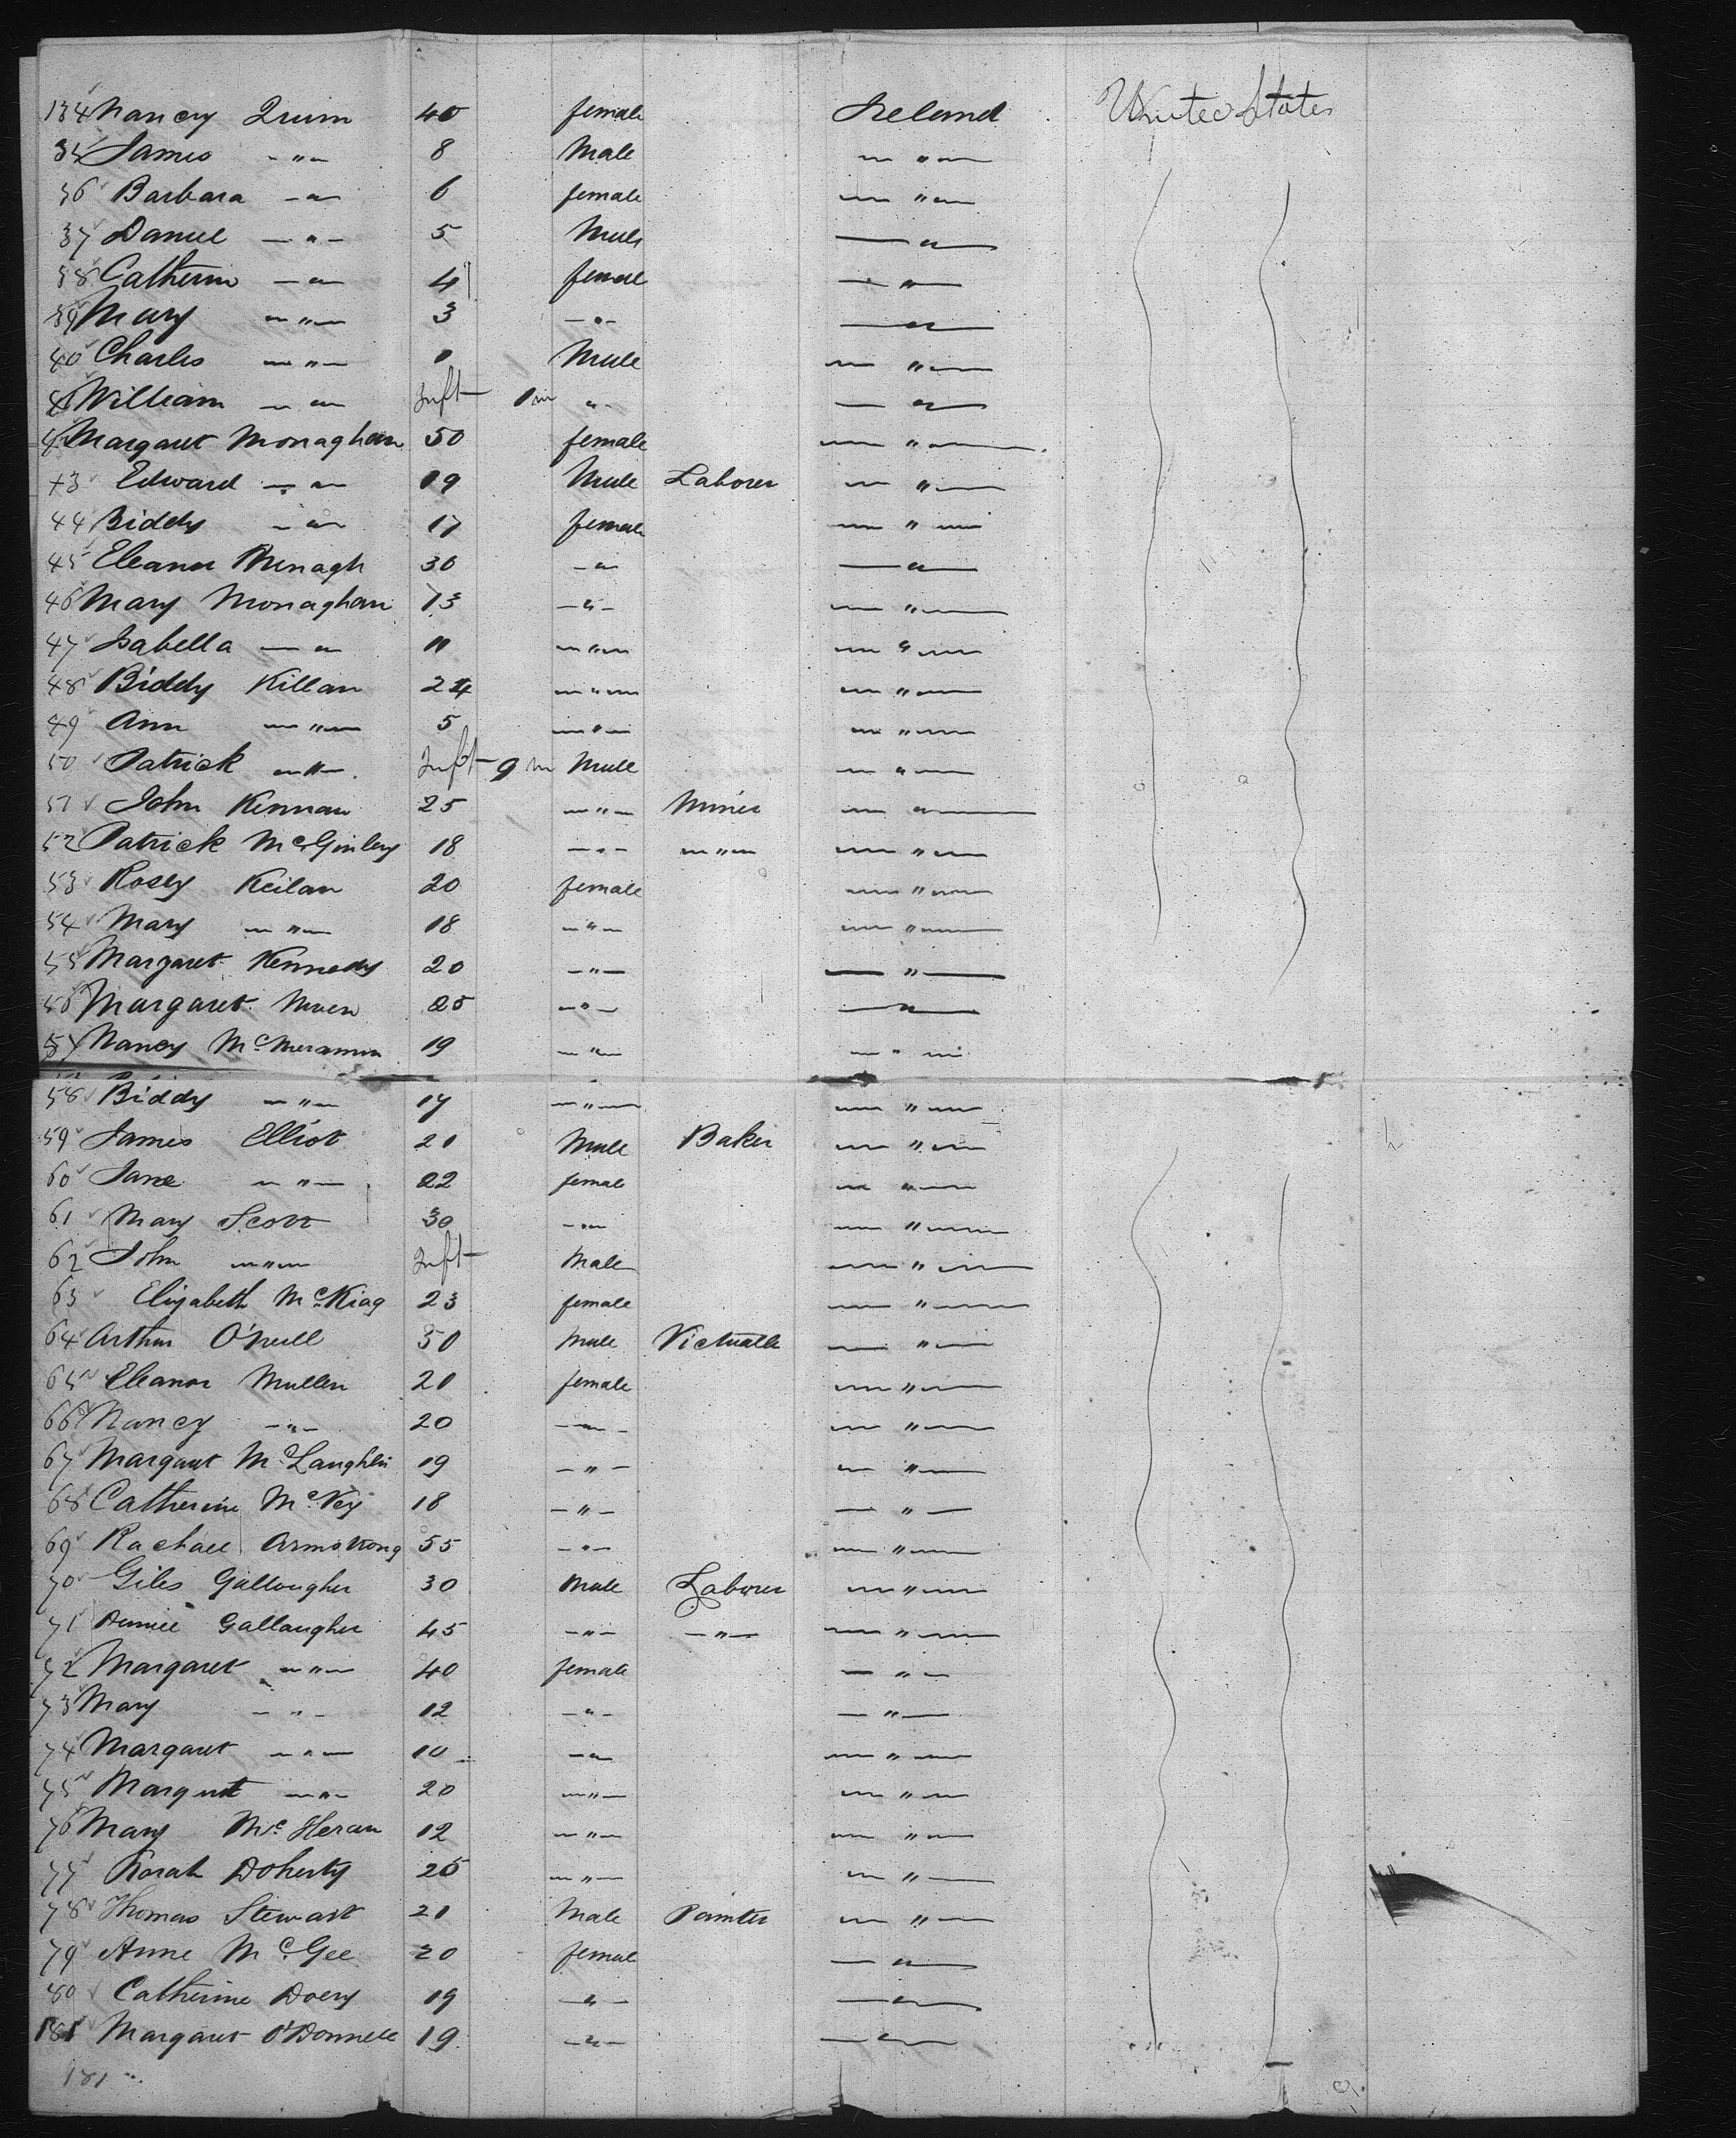 134 Nancy Quinn 40 female Ireland United States
35 James " 8 Male "
36 Barbara " 6 female "
37 Daniel " 5 Male "
38 Catherin " 4 female "
39 Mary " 3 " "
40 Charles " 1 Male "
41 William " Inft 1 m " "
42 Margaret Monaghan 50 female "
43 Edward " 19 Male Laborer "
44 Biddy " 17 female "
45 Eleanor 30 " "
46 Mary Monaghan 13 " "
47 Isabella " 11 " "
48 Biddy Killan 24 " "
49 Ann " 5 " "
50 Patrick " Inft 9 m Male "
51 John Kennan 25 " Miner "
52 Patrick McGinley 18 " " "
53 Rosey Keilan 20 female "
54 Mary " 18 " "
55 Margaret Kennedy 20 " "
56 Margaret 25 " "
57 Nancy 19 " "
58 Biddy " 17 " "
59 James Elliot 21 Male Baker "
60 Jane " 22 female "
61 Mary Scott 30 " "
62 John " Inft Male "
63 Elizabeth McKiag 23 female "
64 Arthur O'Neill 50 Male Victualle "
65 Eleanor Mullen 20 female "
66 Nancy " 20 " "
67 Margaret McLaughlin 19 " "
68 Catherine McVey 18 " "
69 Rachael Armstrong 55 " "
70 Giles Gallougher 30 Male Laborer "
71 Gallaugher 45 " " "
72 Margaret " 40 female "
73 Mary " 12 " "
74 Margaret " 10 " "
75 Margret " 20 " "
76 Mary McHeran 12 " "
77 Norah Doherty 25 " "
78 Thomas Stewart 21 Male Painter "
79 Anne McGee 20 female "
80 Catherine Doery 19 " "
181 Margaret O'Donnell 19 " "
181